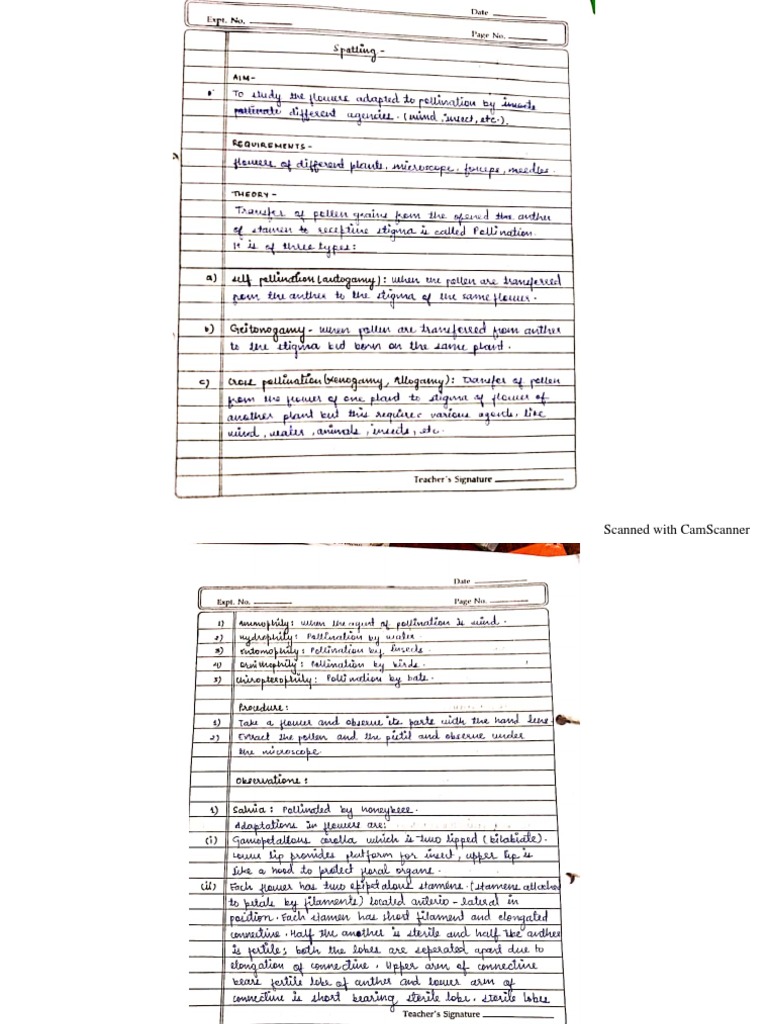 Date
Expt. No.
Page No.
Spotting -
AIM -
To study the flowers adapted to pollination by insects
pollinate different agencies. (wind, insect, etc.).
REQUIREMENTS -
flowers of different plants, microscope, forceps, needles.
THEORY -
Transfer of pollen grains from the opened the anther
of stamen to receptive stigma is called Pollination.
It is of three types:
a) self pollination (autogamy): when the pollen are transferred
from the anther to the stigma of the same flower.
b) Geitonogamy - when pollen are transferred from anther
to the stigma but born on the same plant.
c) Cross pollination (xenogamy, Allogamy): Transfer of pollen
from the flower of one plant to stigma of flower of
another plant but this requires various agents. like
wind, water, animals, insects, etc.
Teacher's Signature
Scanned with CamScanner
Date
Expt. No.
Page No.
1) Anemophily: when the agent of pollination is wind.
2) Hydrophily: Pollination by water.
3) Entomophily: Pollination by insects.
4) Ornithophily: Pollination by birds.
5) Chiropterophily: Pollination by bats.
Procedure:
1) Take a flower and observe its parts with the hand lens.
2) Extract the pollen and the pistil and observe under
the microscope.
Observations:
1) Salvia: Pollinated by honeybees.
Adaptations in flowers are:
(i) Gamopetallous corolla which is two lipped (bilabiate).
Lower lip provides platform for insect, upper lip is
like a hood to protect floral organs.
(ii) Each flower has two epipetalous stamens. (stamens attached
to petals by filaments) located anterio-lateral in
position. Each stamen has short filament and elongated
connective. Half the another is sterile and half the anther
is fertile; both the lobes are seperated apart due to
elongation of connective. Upper arm of connective
bears fertile lobe of anther and lower arm of
connective is short bearing sterile lobe. Sterile lobes
Teacher's Signature